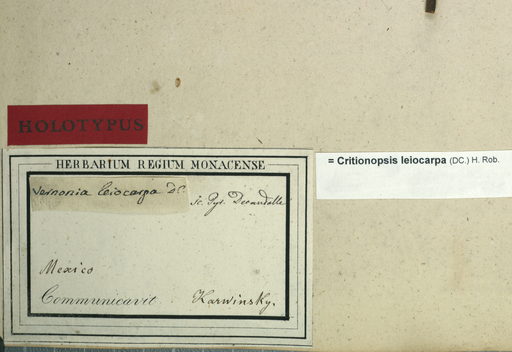 HOLOTYPUS
HERBARIUM REGIUM MONACENSE
= Critionopsis leiocarpa (DC.) H. Rob.
Vernonia leiocarpa DC.
Decandolle
Mexico
Communicavit Karwinsky.